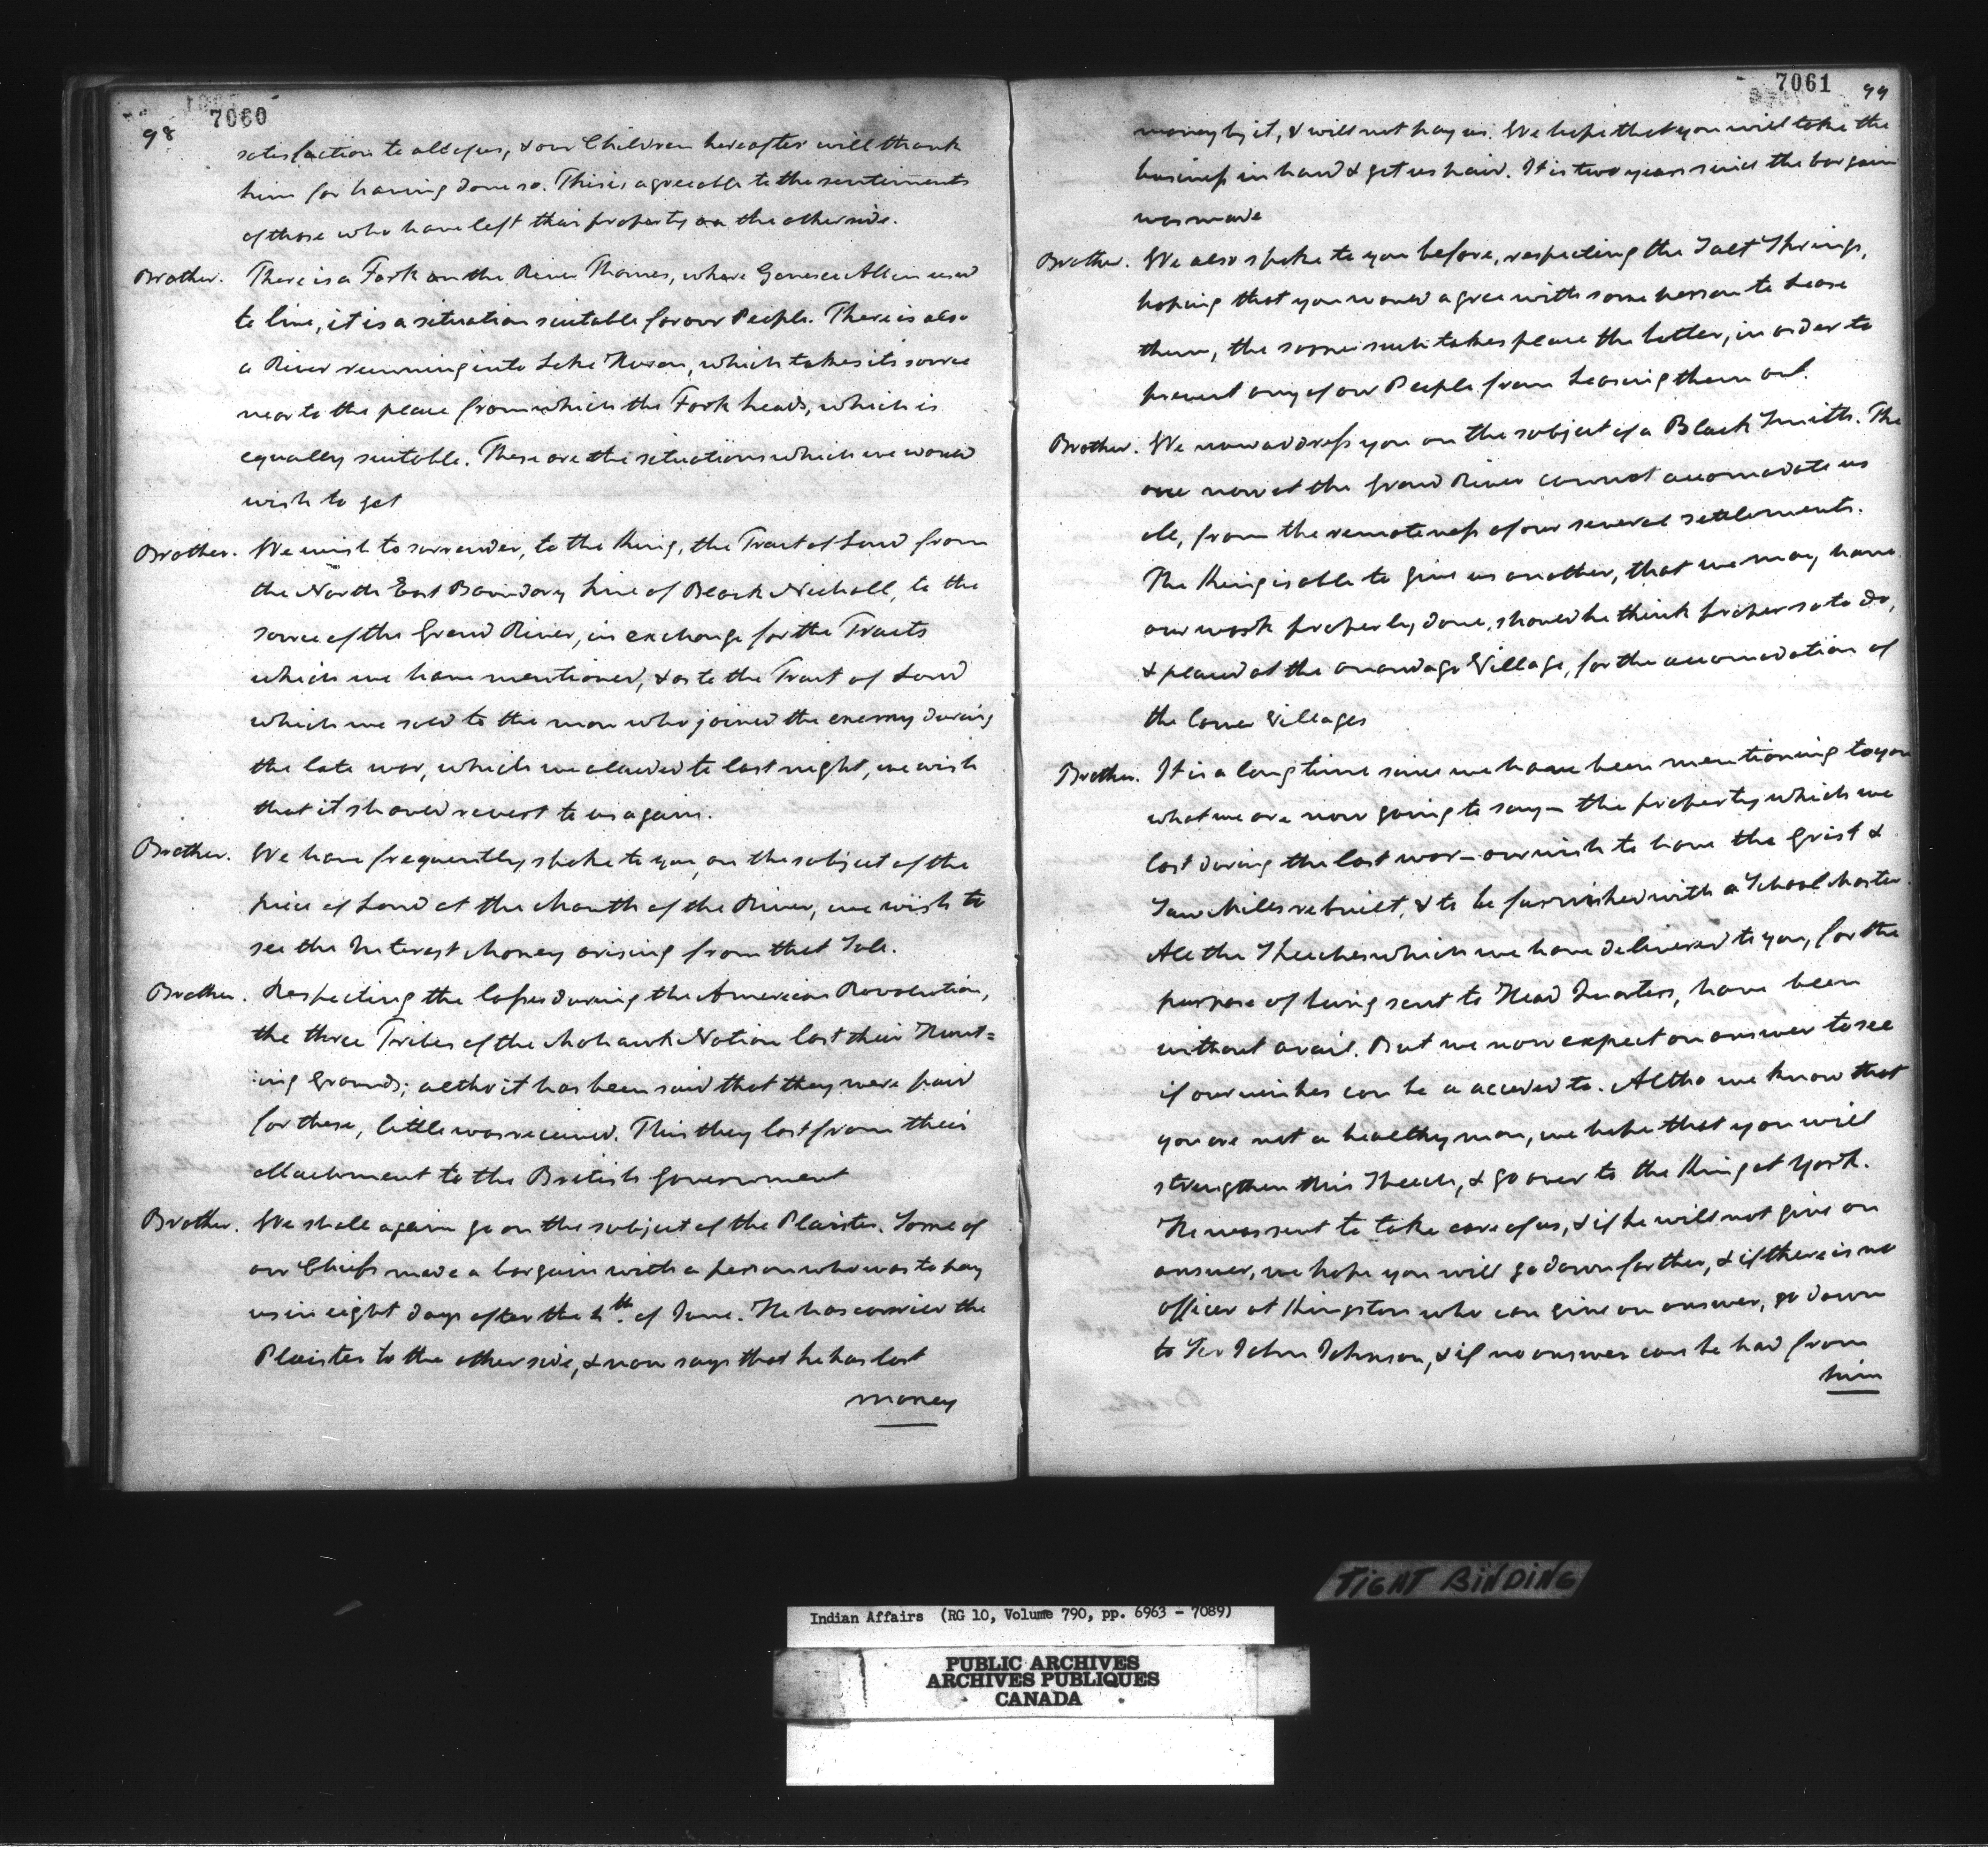 98 7060
satisfaction to all of us, & our Children hereafter will thank
him for having done so. This is agreeable to the sentiments
of those who have left their property on the other side.
Brother. There is a Fork on the River Thames, where Genesee Allen used
to live, it is a situation suitable for our People. There is also
a River running into Lake Huron, which takes its source
near to the place from which the Fork heads, which is
equally suitable. These are the situations which we would
wish to get
Brother. We wish to surrender, to the King, the Tract of Land from
the North East Boundary Line of Block Nicholl, to the
source of the Grand River, in exchange for the Tracts
which we have mentioned, & as to the Tract of Land
which we sold to the man who joined the enemy during
the late war, which we aluded to last night, we wish
that it should revert to us again.
Brother. We have frequently spoke to you, on the subject of the
piece of Land at the Mouth of the River, we wish to
see the Interest Money arising from that Sale.
Brother. Respecting the losses during the American Revolution,
the three Tribes of the Mohawk Nation lost their Hunt=
ing Grounds; altho it has been said that they were paid
for these, little was received. This they lost from their
attachment to the British Government
Brother. We shall again go on the subject of the Plaister. Some of
our Chiefs made a bargain with a person who was to pay
us in eight days after the 4th. of June. He has carried the
Plaister to the other side, & now says that he has lost
money
7061 99
money by it, & will not pay us. We hope that you will take the
business in hand & get us paid. It is two years since the bargain
was made
Brother. We also spoke to you before, respecting the Salt Springs,
hoping that you would agree with some person to Lease
them, the sooner such takes place the better, in order to
prevent any of our People from Leasing them out.
Brother. We now address you on the subject of a Black Smith. The
one now at the Grand River cannot accomodate us
all, from the remoteness of our several settlements.
The King is able to give us another, that we may have
our work properly done, should he think proper so to do,
& placed at the Onondaga Village, for the accomodation of
the lower Villages
Brother. It is a long time since we have been mentioning to you
what we are now going to say – the property which we
lost during the last war – our wish to have the Grist &
Saw Mills rebuilt, & to be furnished with a School Master.
All the Speeches which we have delivered to you, for the
purpose of being sent to Head Quarters, have been
without avail. But we now expect an answer to see
if our wishes can be a acceded to. Altho we know that
you are not a healthy man, we hope that you will
strengthen this Speech, & go over to the King at York.
He was sent to take care of us, & if he will not give an
answer, we hope you will go down farther, & if there is no
officer at Kingston who can give an answer, go down
to Sir John Johnson, & if no answer can be had from
him
TIGHT BINDING
Indian Affairs (RG 10, Volume 790, pp. 6963 - 7089)
PUBLIC ARCHIVES
ARCHIVES PUBLIQUES
CANADA